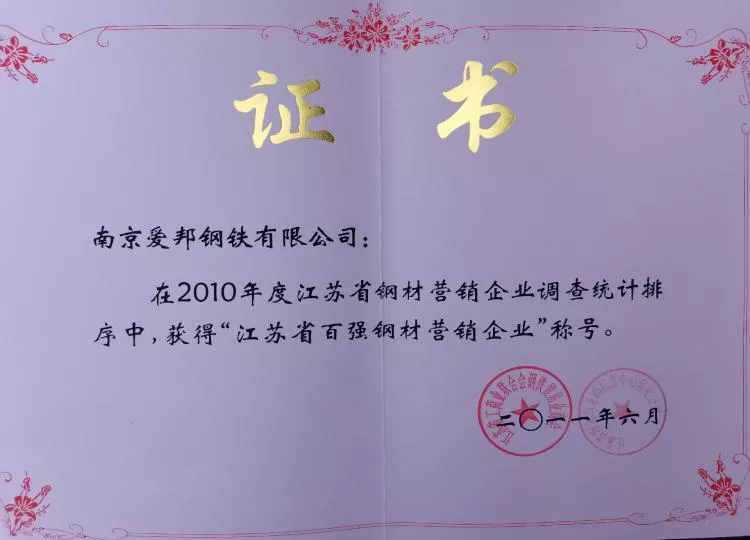 证书
南京爱邦钢铁有限公司：
在2010年度江苏省钢材营销企业调查统计排
序中，获得“江苏省百强钢材营销企业”称号。
二〇一一年六月